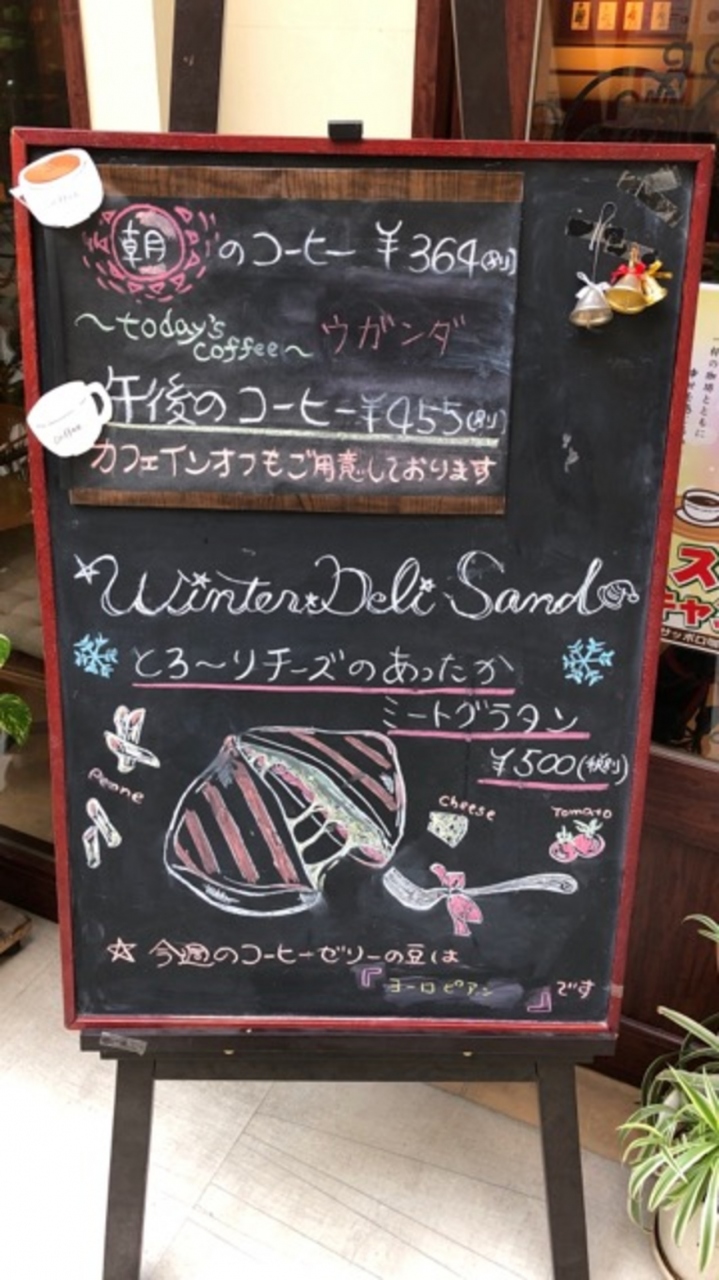 朝のコーヒー ¥364(税別)
～today's coffee～ ウガンダ
午後のコーヒー ¥455(税別)
カフェインオフもご用意しております
Coffee
Winter Deli Sand
とろ～りチーズのあったか
ミートグラタン
¥500(税別)
Penne
cheese
Tomato
☆今週のコーヒーゼリーの豆は
『ヨーロピアン』です